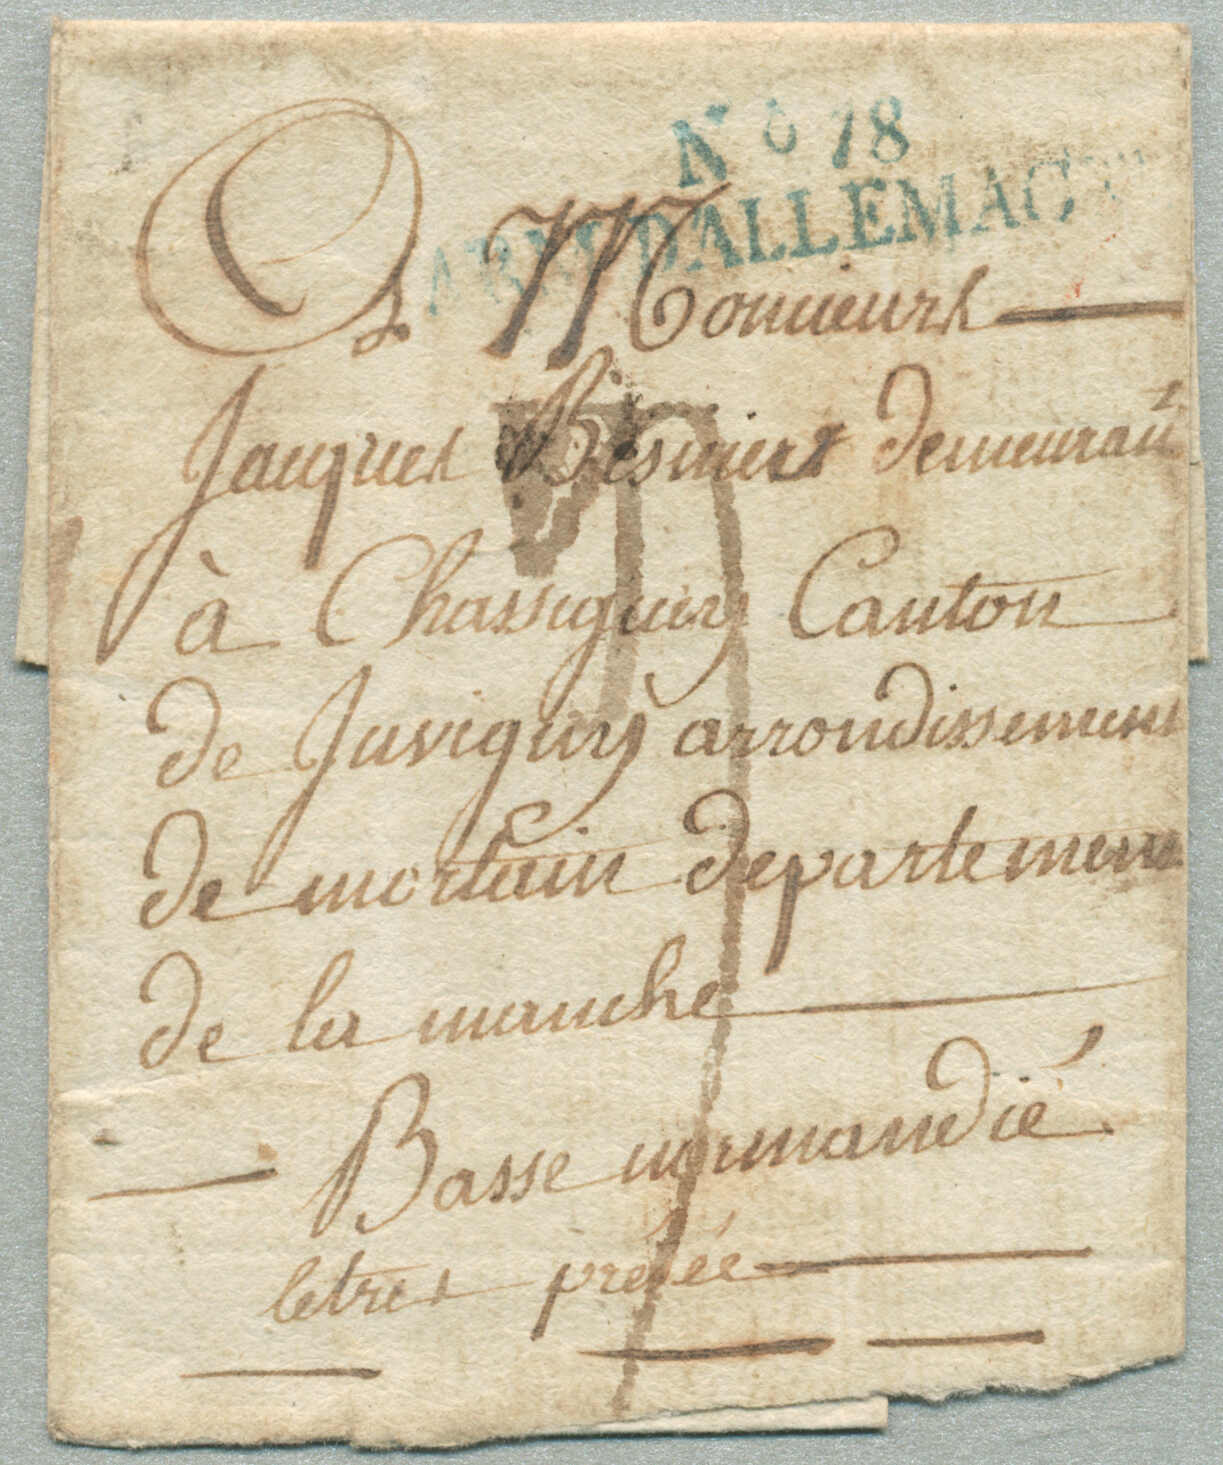 No 18
ARM D'ALLEMAG
A Monsieurs
Jacques Besniers demeurant
à Chassiguiy Canton
de Juviguiy arrondissement
de mortain departement
de la manche
Basse normandié
letres presée